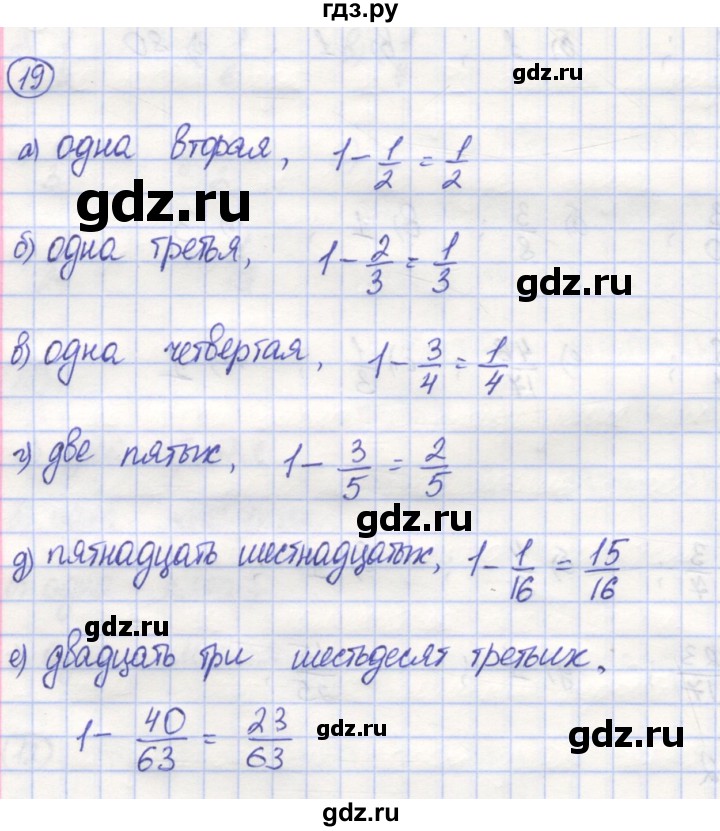 гдз.ру
gdz.ru
19
а) одна вторая, 1 - 1/2 = 1/2
gdz.ru
б) одна третья, 1 - 2/3 = 1/3
gdz.ru
в) одна четвертая, 1 - 3/4 = 1/4
г) две пятых, 1 - 3/5 = 2/5
gdz.ru
д) пятнадцать шестнадцатых, 1 - 1/16 = 15/16
gdz.ru
е) двадцать три шестьдесят третьих,
1 - 40/63 = 23/63
gdz.ru
gdz.ru
gdz.ru